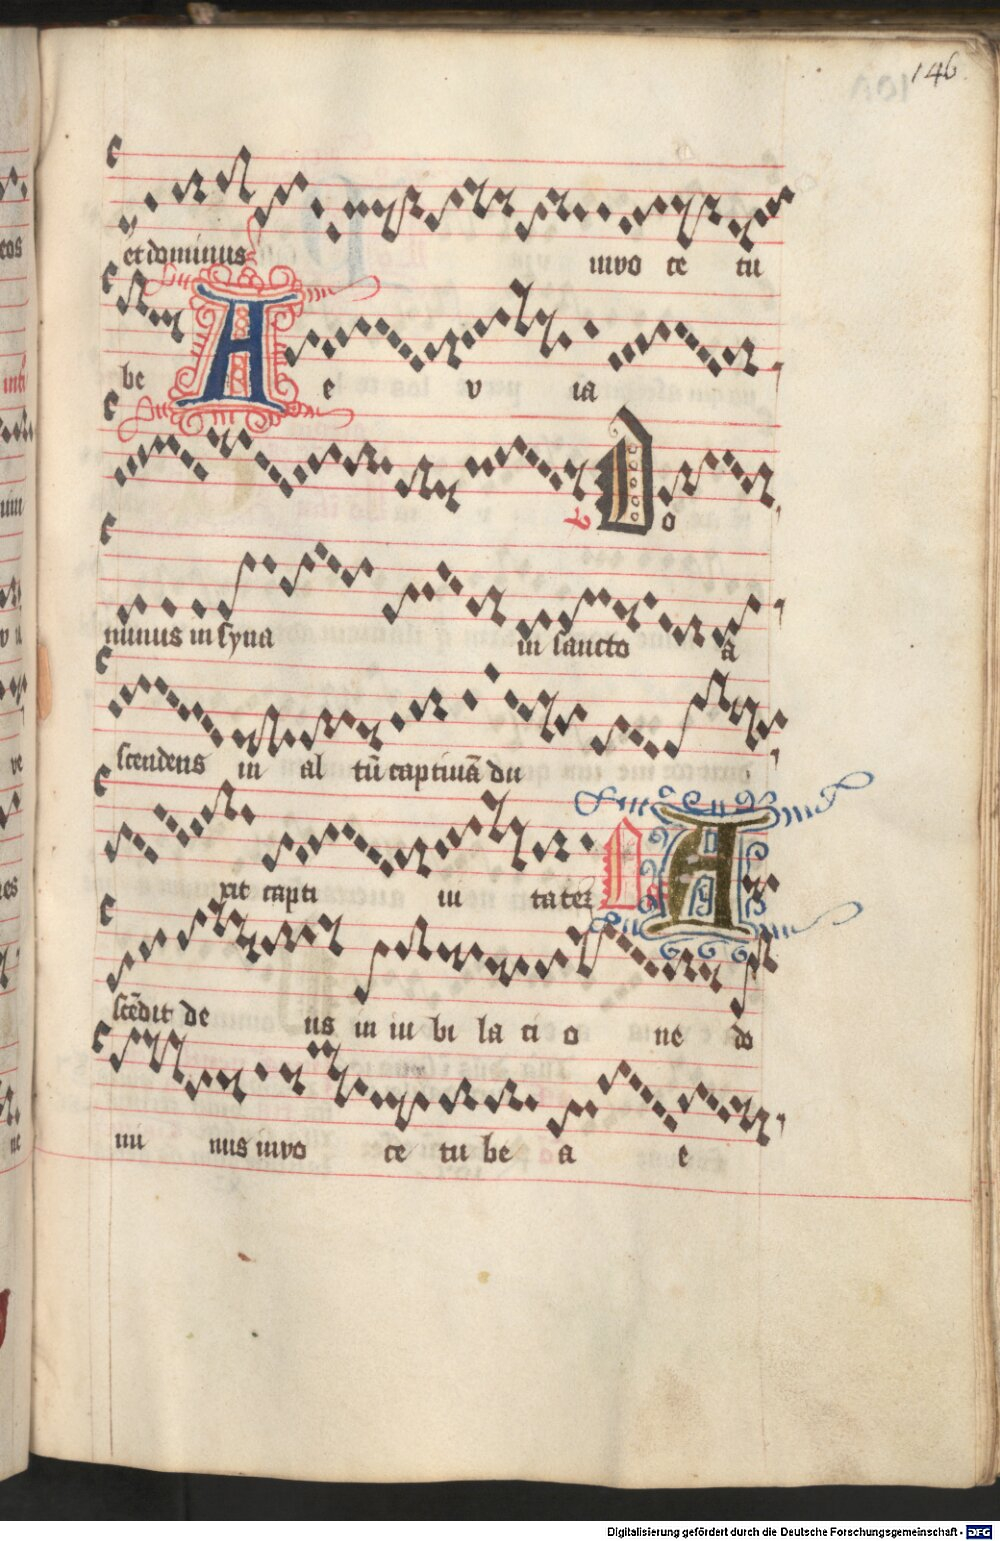 146
et dominus in vo ce tu
be A e v ia
v Do
minus in syna in sancto a
scendens in al tū captiuā du
xit capti ui tatez A
scēdit de us in iu bi la ci o ne do
mi nus in vo ce tu be a e
Digitalisierung gefördert durch die Deutsche Forschungsgemeinschaft - DFG